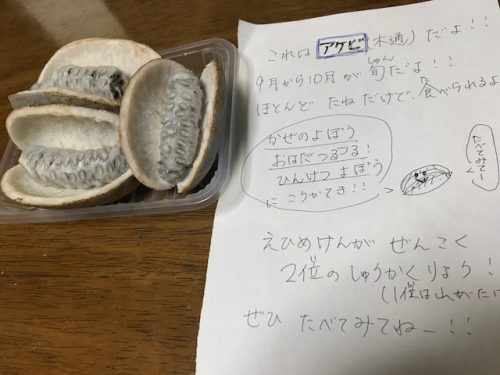 これは アケビ(木通)だよ!!
9月から10月が旬だよ!!
しゅん
ほとんど たねだけど、食べられるよ
た
かぜのよぼう
おはだつるつる!
ひんけつ よぼう
に こうかてき!!
たべてみてー
えひめけんが ぜんこく
2位の しゅうかくりょう!
い
(1位は山がたけ
い
ぜひ たべてみてねー!!